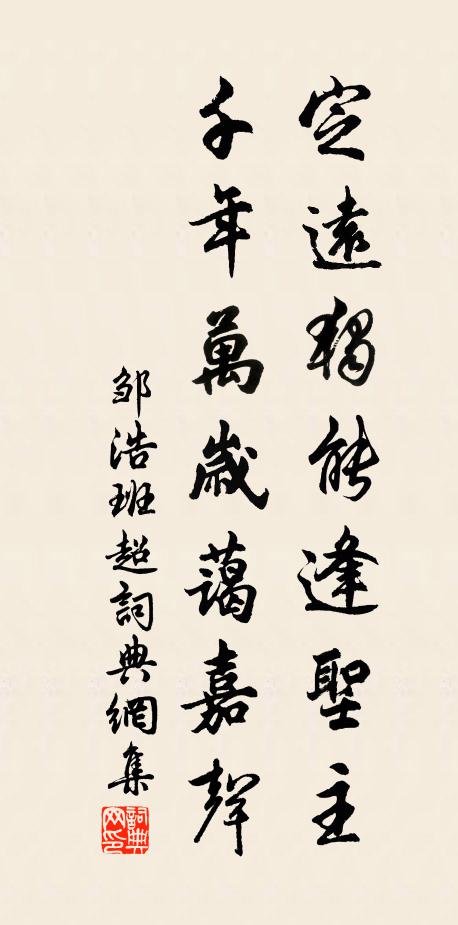 定遠獨能逢聖主
千年萬歲藹嘉聲
鄒浩班超詞典網集
詞典網印